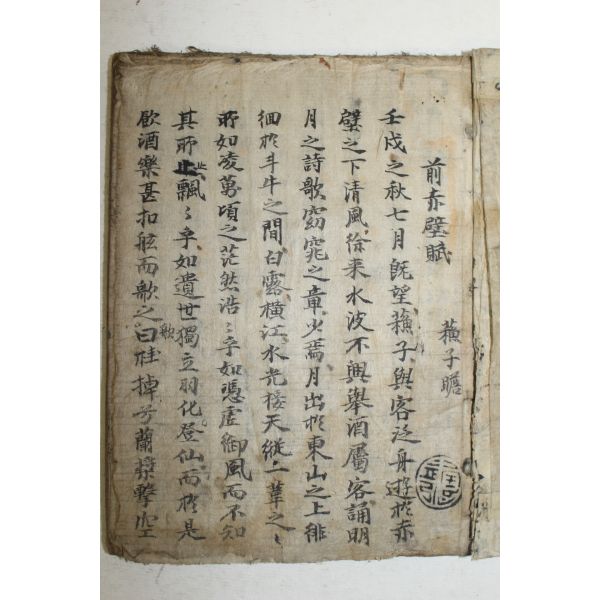 前赤壁賦
蘇子瞻
壬戌之秋七月既望蘇子與客泛舟遊於赤
壁之下清風徐来水波不興舉酒屬客誦明
月之詩歌窈窕之章少焉月出於東山之上徘
徊於斗牛之間白露横江水光接天縱一葦之〻
所如凌萬頃之茫然浩〻乎如憑虛御風而不知
其所止飄〻乎如遺世獨立羽化登仙而於是
飮酒樂甚扣舷而歌之歌曰桂掉兮蘭槳擊空